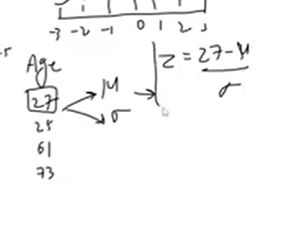 -3 -2 -1 0 1 2 3
Age
27
25
61
73
μ
σ
z = 27-μ
σ